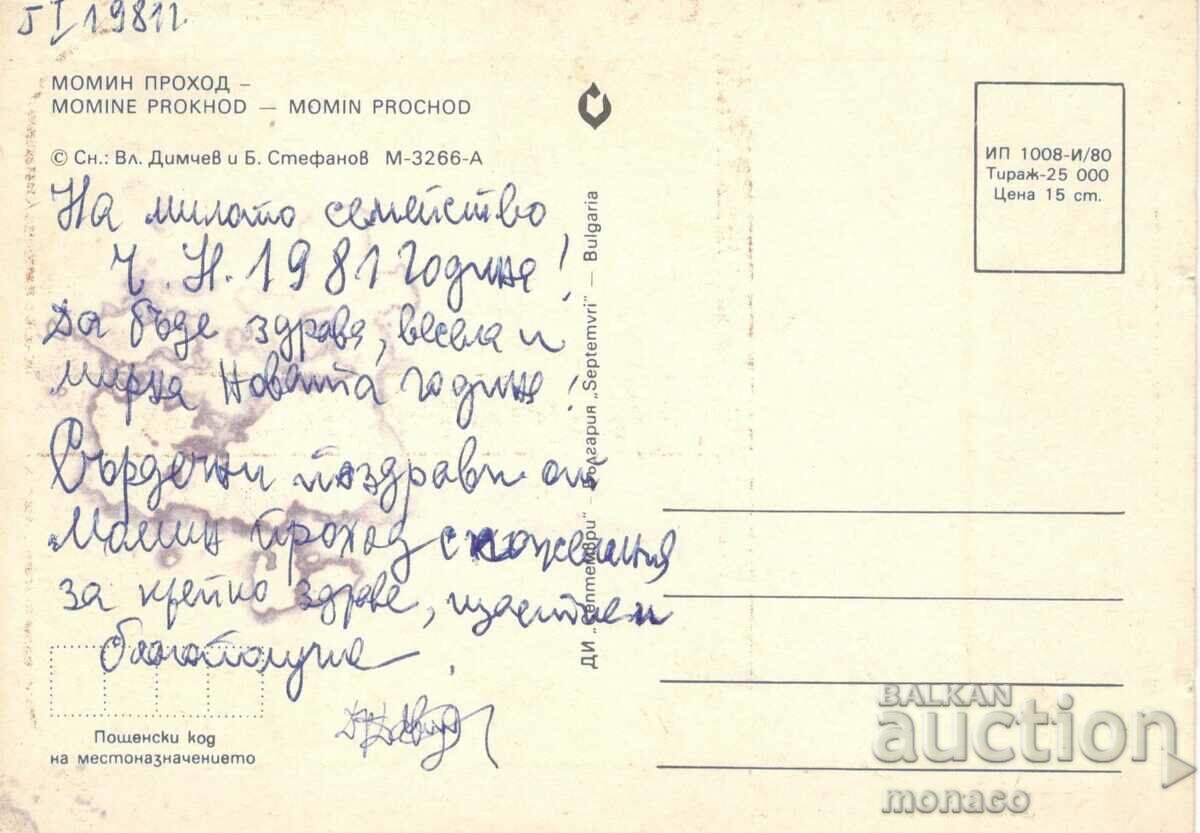 5 I 1981г
МОМИН ПРОХОД –
MOMINE PROKHOD — MOMIN PROCHOD
© Сн.: Вл. Димчев и Б. Стефанов М-3266-А
На милото семейство
Ч. Н. 1981 година!
Да бъде здрава, весела и
мирна Новата година!
Сърдечни поздрави от
Момин проход с пожелания
за крепко здраве, щастие и
благополучие.
Пощенски код
на местоназначението
ДИ „Септември" – България „Septemvri" — Bulgaria
ИП 1008-И/80
Тираж-25 000
Цена 15 ст.
BALKAN
auction
monaco